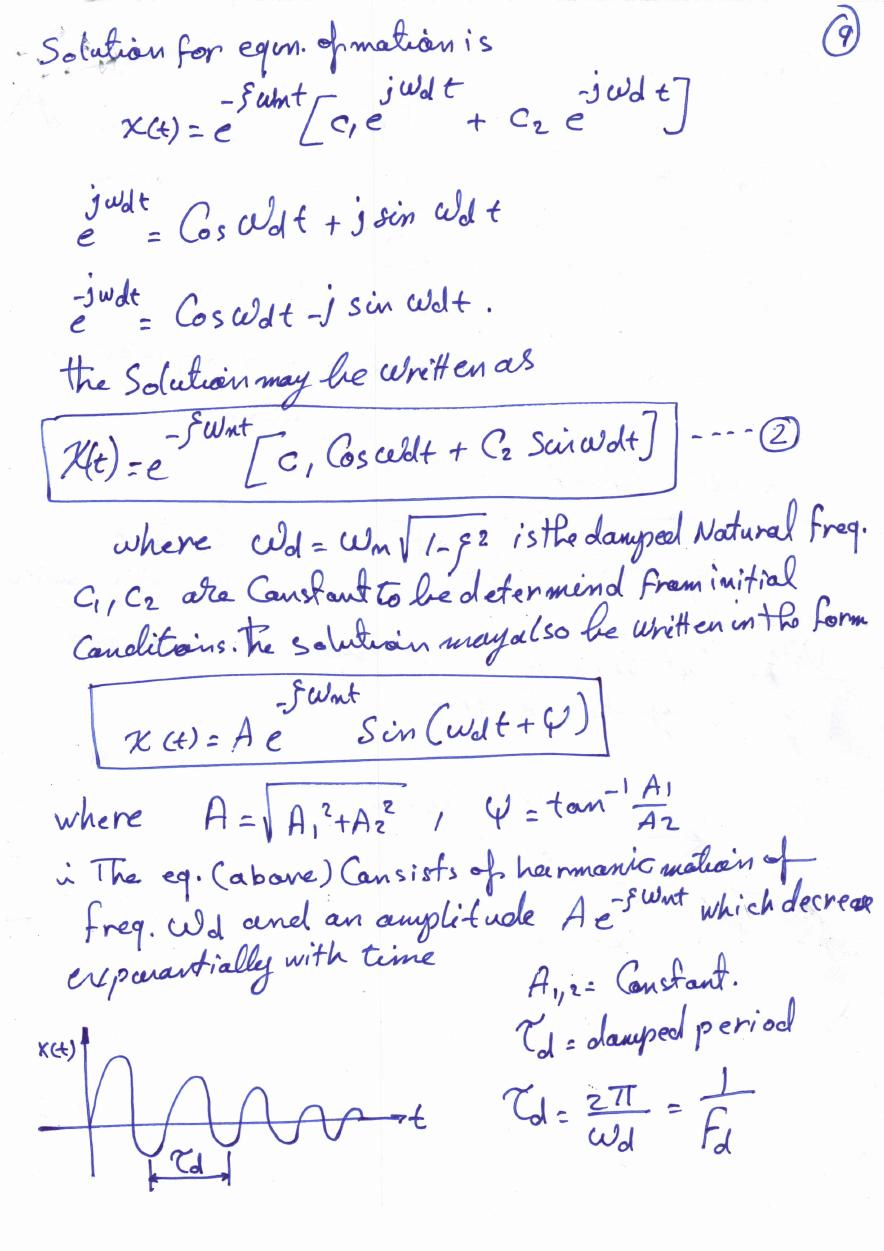 9
Solution for equn. of motion is
x(t) = e^{-ξωnt} [c₁e^{jωdt} + c₂ e^{-jωdt}]
e^{jωdt} = Cos ωdt + j sin ωdt
e^{-jωdt} = Cos ωdt - j sin ωdt.
the Solution may be written as
X(t) = e^{-ξωnt} [c₁ Cos ωdt + C₂ Sin ωdt] ---- 2
where ωd = ωn √(1-ξ²) is the damped Natural freq.
C₁, C₂ are Constant to be determind from initial
Conditoins. The solution may also be written in the form
x(t) = A e^{-ξωnt} Sin (ωdt + ψ)
where A = √(A₁² + A₂²) , ψ = tan⁻¹ A₁/A₂
The eq. (above) Consists of harmonic motion of
freq. ωd and an amplitude A e^{-ξωnt} which decrease
exponantially with time
A₁,₂ = Constant.
τd = damped period
τd = 2π/ωd = 1/Fd
x(t)
t
τd